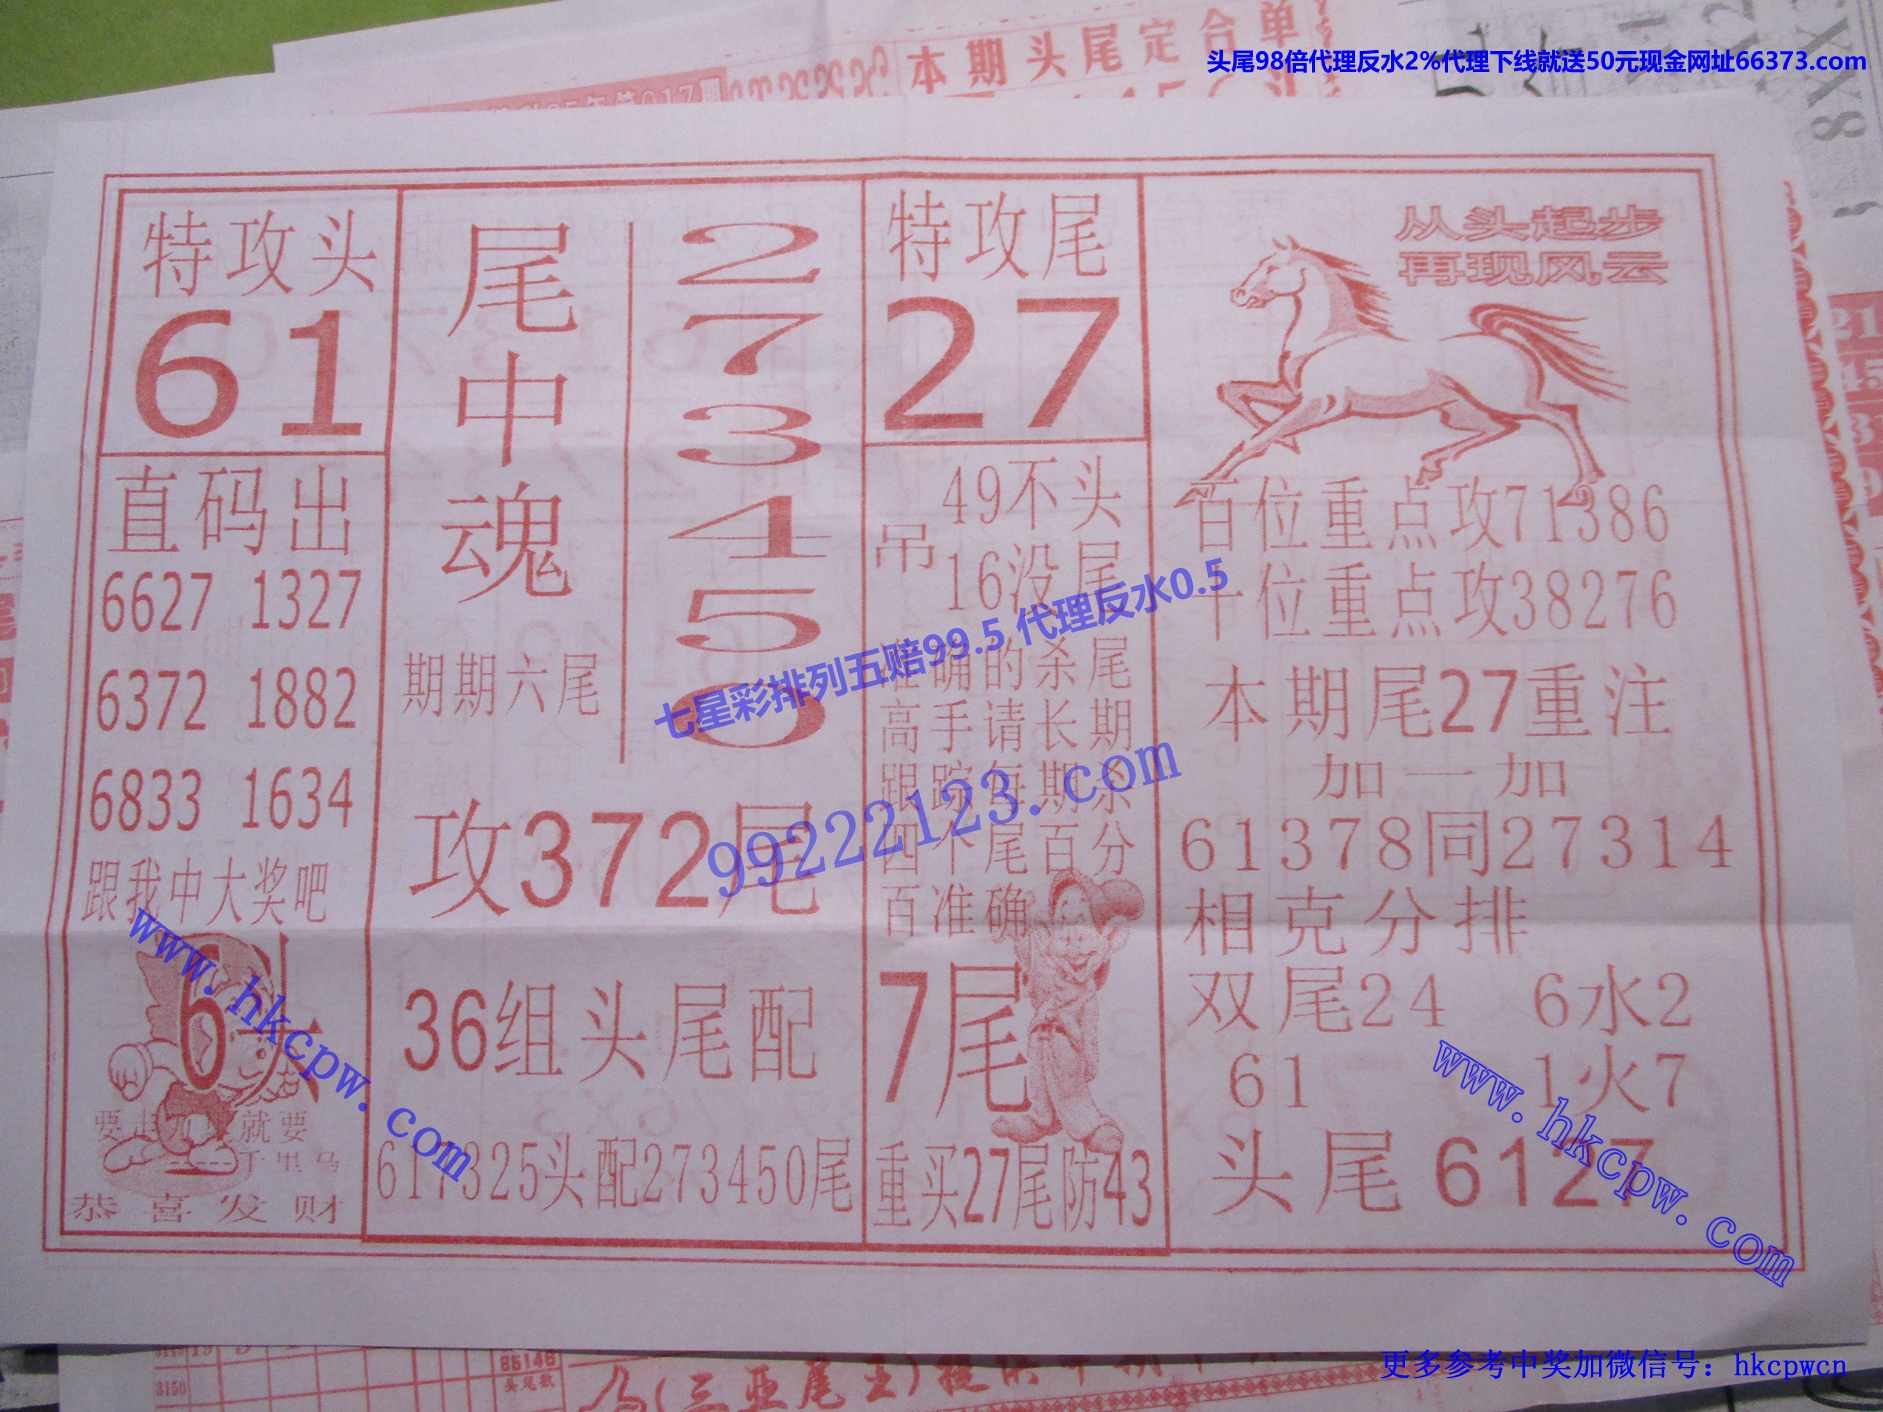 本期头尾定合单
头尾98倍代理反水2%代理下线就送50元现金网址66373.com
特攻头
61
直码出
6627 1327
6372 1882
6833 1634
跟我中大奖吧
6头
恭喜发财
尾中魂
273450
期期六尾
攻372尾
36组头尾配
617325头配273450尾
特攻尾
27
吊
49不头
16没尾
准确的杀尾
高手请长期
跟踪每期杀
四个尾百分
百准确
7尾
重买27尾防43
从头起步
再现风云
百位重点攻71386
十位重点攻38276
本期尾27重注
加一加
61378同27314
相克分排
双尾24 6水2
61 1火7
头尾6127
七星彩排列五赔99.5 代理反水0.5
99222123.com
www.hkcpw.com
www.hkcpw.com
85148
头尾数
3150
(三亚尾王)提供
更多参考中奖加微信号：hkcpwcn